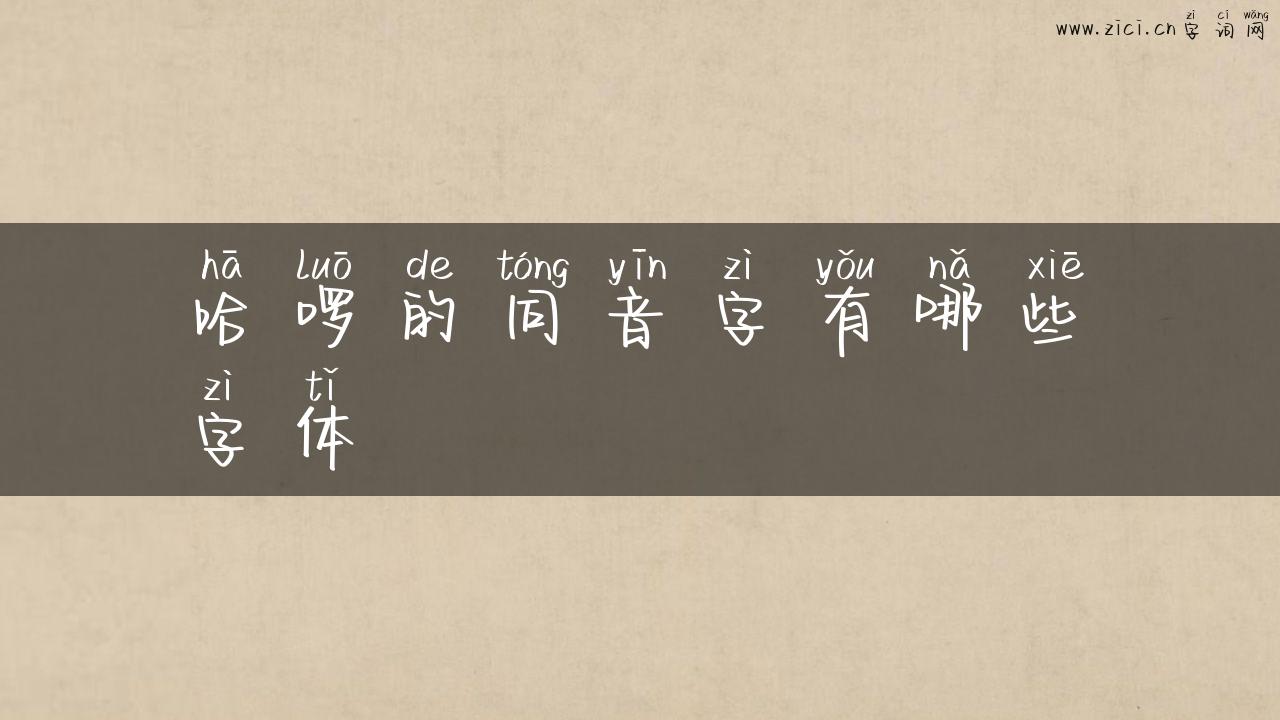 zì cí wǎng
www.zici.cn 字词网
hā luō de tóng yīn zì yǒu nǎ xiē
哈啰的同音字有哪些
zì tǐ
字体